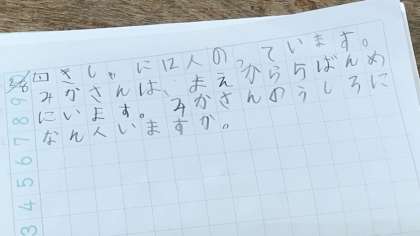 ① きしゃに12人のっています。
みかさんは、まえから5ばんめ
にいます。みかさんのうしろに
なん人いますか。
9
8
7
6
5
4
3